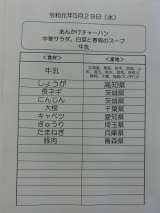 令和元年5月29日（水）
あんかけチャーハン
中華サラダ、白菜と春雨のスープ
牛乳
＜食材＞ ＜産地＞
牛乳
しょうが 高知県
長ネギ 茨城県
にんじん 茨城県
大根 千葉県
キャベツ 愛知県
きゅうり 埼玉県
たまねぎ 兵庫県
豚肉 青森県